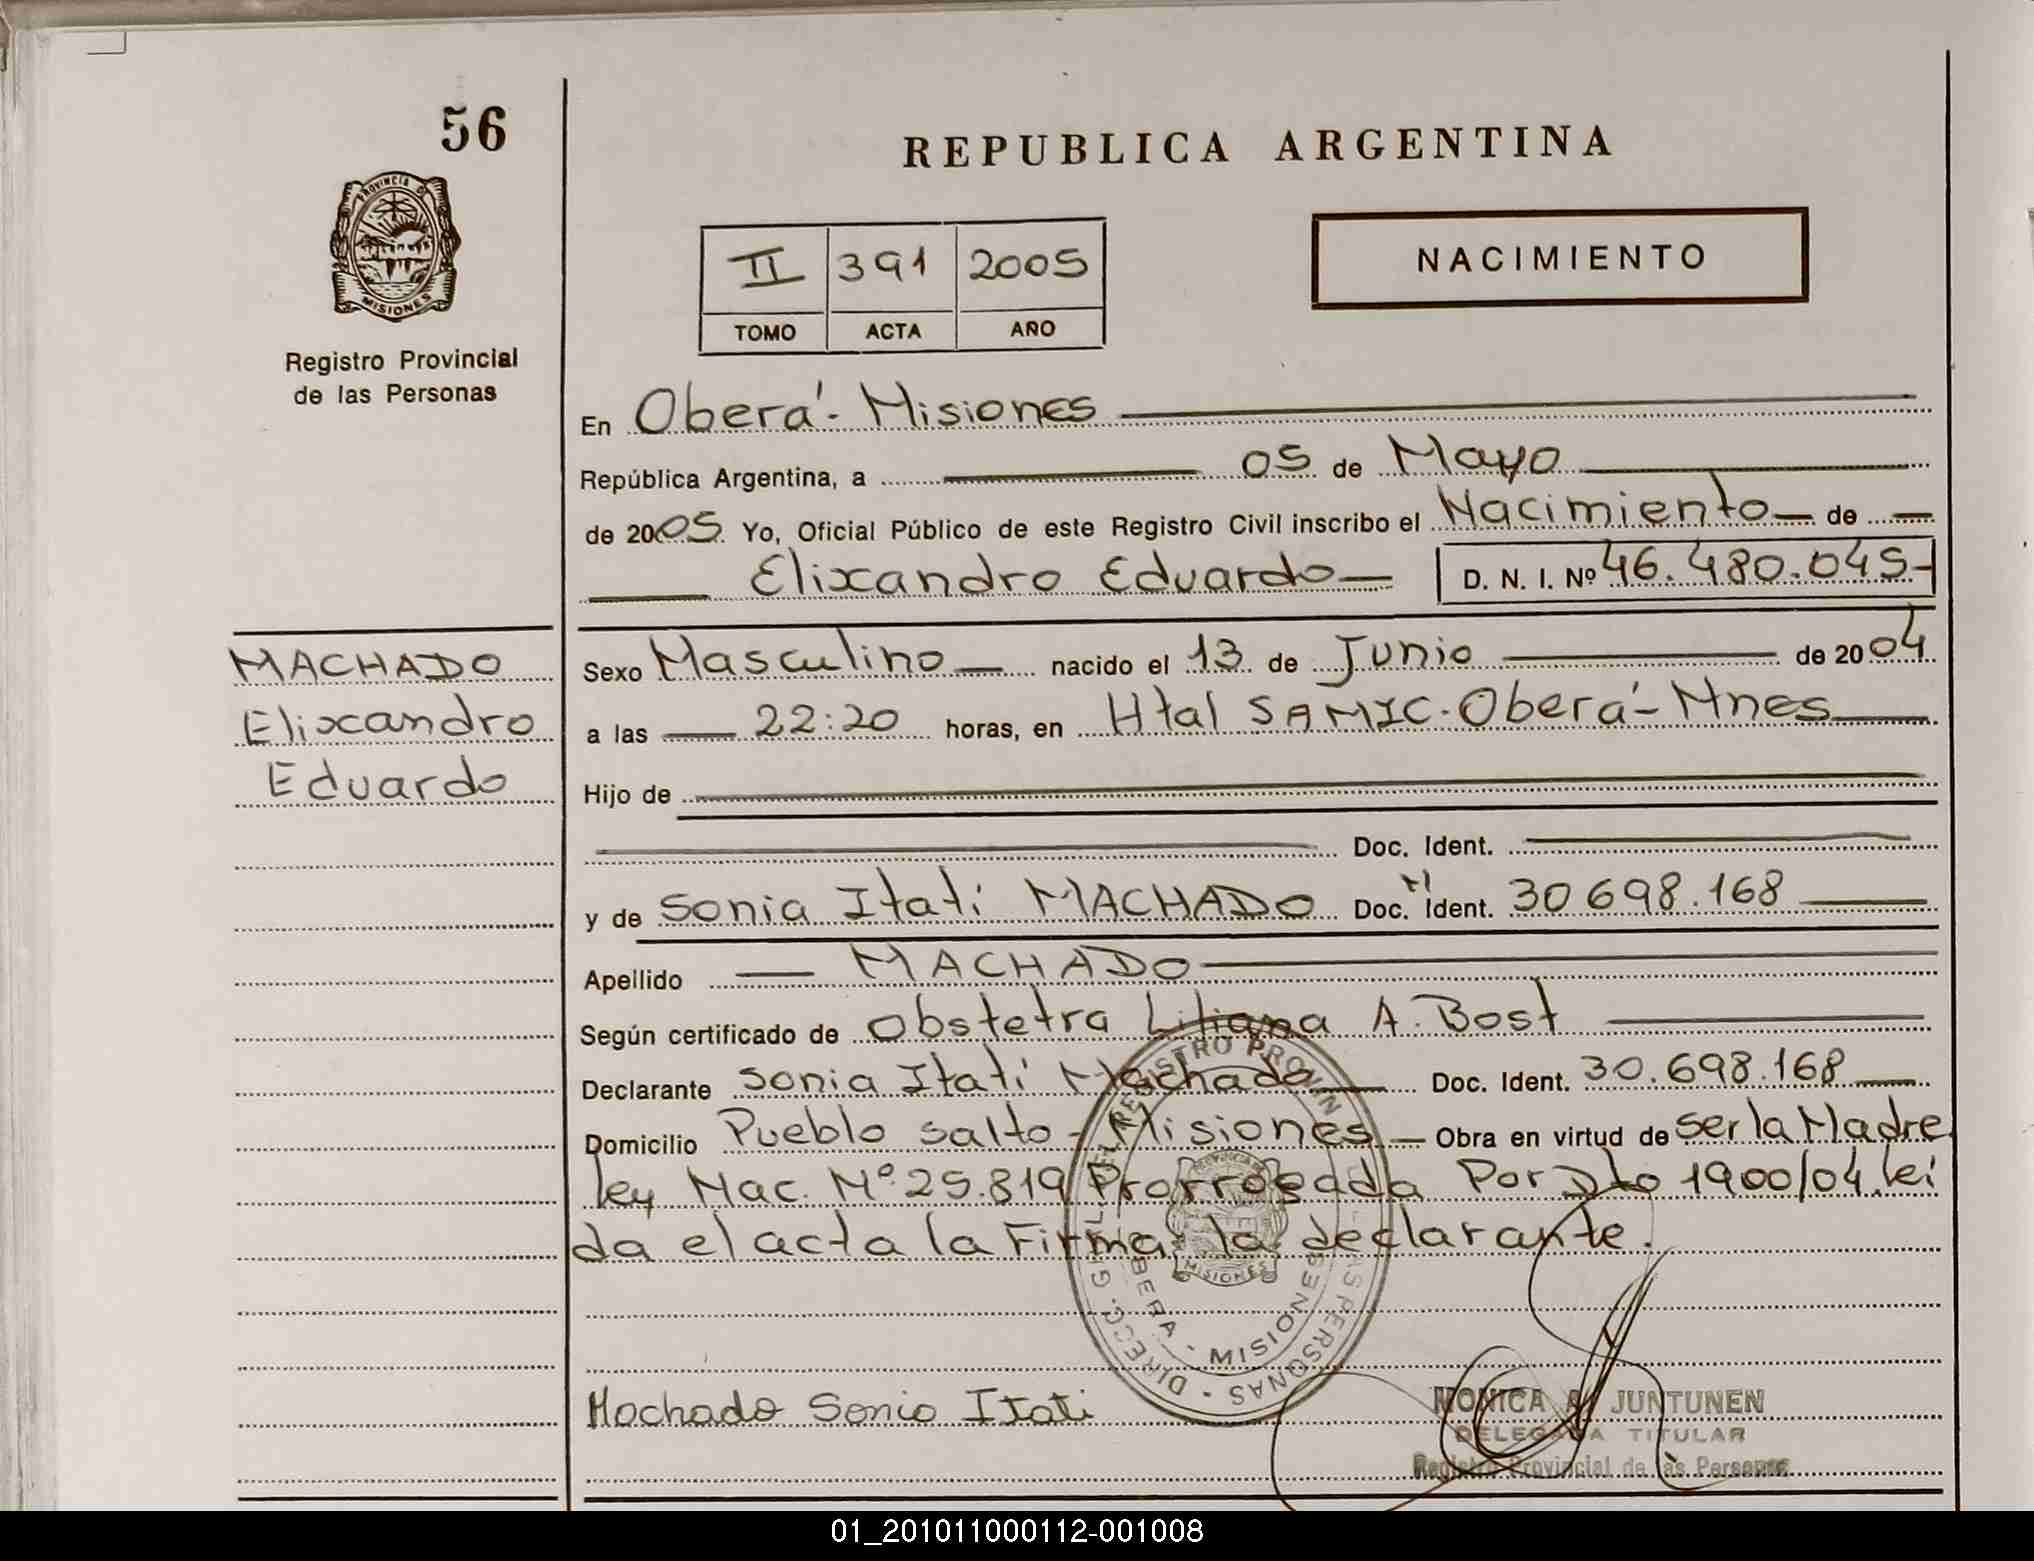 56
REPUBLICA ARGENTINA
PROVINCIA DE
MISIONES
Registro Provincial
de las Personas
II 391 2005
TOMO ACTA AÑO
NACIMIENTO
En Oberá - Misiones
República Argentina, a 05 de Mayo
de 2005 Yo, Oficial Público de este Registro Civil inscribo el Nacimiento de
Elixandro Eduardo D. N. I. Nº 46.480.045-
MACHADO
Elixandro
Eduardo
Sexo Masculino nacido el 13 de Junio de 2004
a las 22:20 horas, en Htal SAMIC. Oberá - Mnes
Hijo de
Doc. Ident.
y de Sonia Itatí MACHADO Doc. Ident. 30 698.168
Apellido MACHADO
Según certificado de Obstetra Liliana A. Bost
Declarante Sonia Itatí Machado Doc. Ident. 30.698.168
Domicilio Pueblo Salto - Misiones Obra en virtud de ser la Madre
ley Nac. Nº 25.819 Prorrogada Por Dto 1900/04. lei
da el acta la Firma la declarante.
DIRECC. GRAL. DEL REGISTRO PROVIN LAS PERSONAS
OBERA - MISIONES
MISIONES
Machado Sonia Itati
MONICA A. JUNTUNEN
DELEGADA TITULAR
Registro Provincial de las Personas
01_201011000112-001008